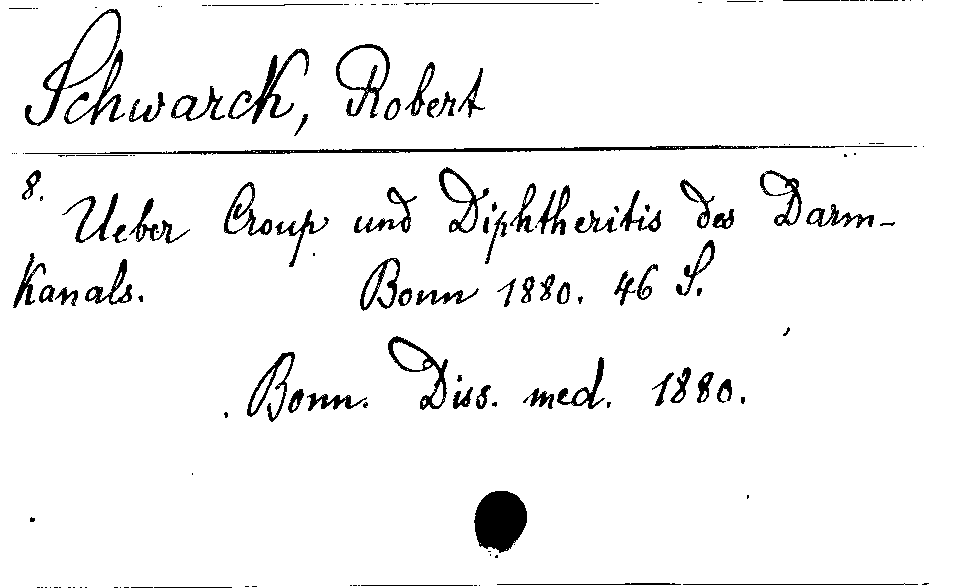 Schwarck, Robert
8.
Ueber Croup und Diphtheritis des Darm-
kanals. Bonn 1880. 46 S.
Bonn. Diss. med. 1880.